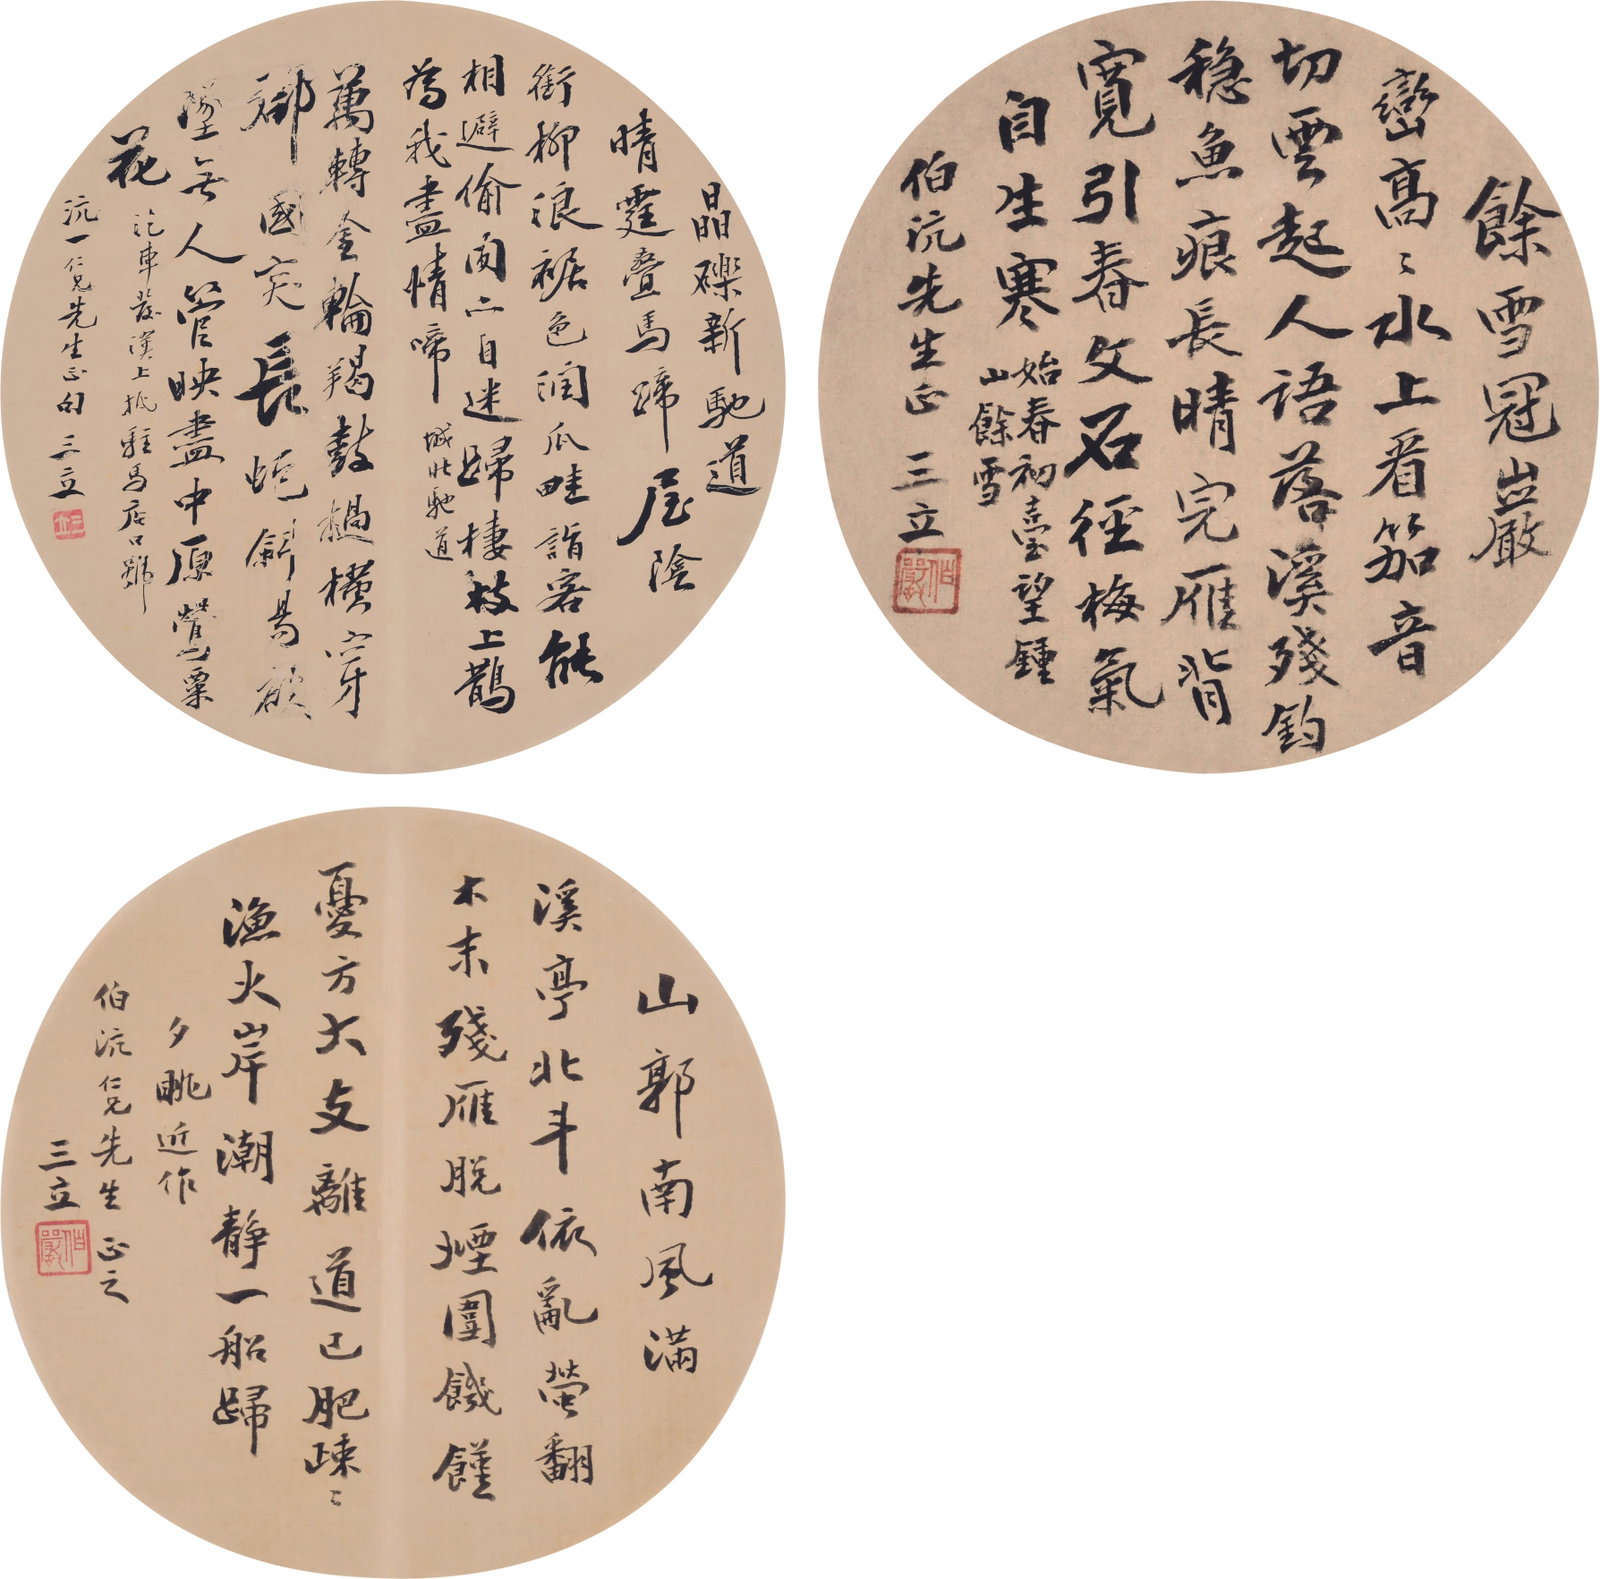 晶礫新馳道
晴霆疊馬蹄屋陰
銜柳浪裾色潤瓜畦諧客能
相避偷閑亦自迷歸棲枝上鵲
為我盡情啼
城北馳道
萬轉金輪羯鼓撾橫穿
鄳國突長蛇斜陽欲
墜無人管映盡中原罌粟
花
汽車發漢上抵駐馬店口號
沆一仁兄先生正句 三立
餘雪冠岩巖
巒高〻水上看笳音
切雲起人語落溪殘鈞
穩魚痕長晴完雁背
寬引春文石徑梅氣
自生寒
始春初臺望鍾
山餘雪
伯沆先生正 三立
伯嚴
山郭南風滿
溪亭北斗依亂螢翻
木末殘雁脫煙圍饑饉
憂方大支離道已肥疎〻
漁火岸潮靜一船歸
夕眺近作
伯沆仁兄先生正之
三立
伯嚴